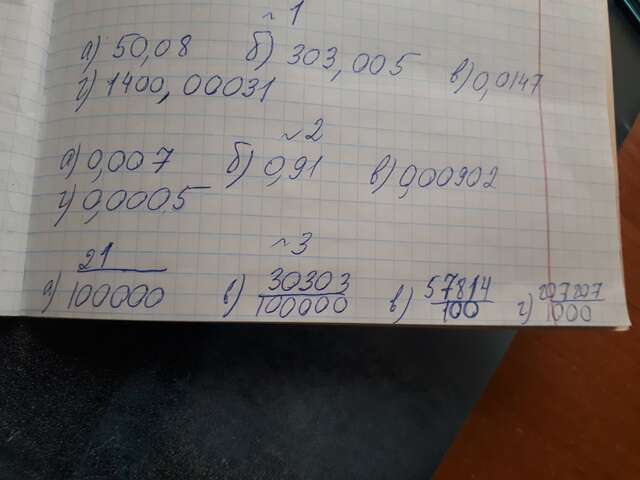 ~ 1
а) 50,08 б) 303,005 в) 0,0147
г) 1400,00031
~ 2
а) 0,007 б) 0,91 в) 0,00902
г) 0,0005
~ 3
а) 21/100000 в) 30303/100000 в) 57814/100 г) 207207/1000